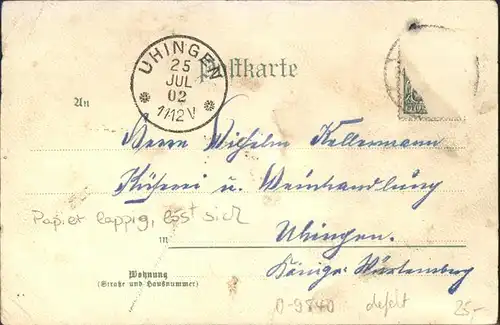 UHINGEN
25
JUL
02
11-12 V
Postkarte
An
Herrn Wilhelm Kellermann
Küferei u. Weinhandlung
Papier lappig, löst sich
in
Uhingen.
Königr. Württemberg
Wohnung
(Straße und Hausnummer)
D-9840 defekt 25,-